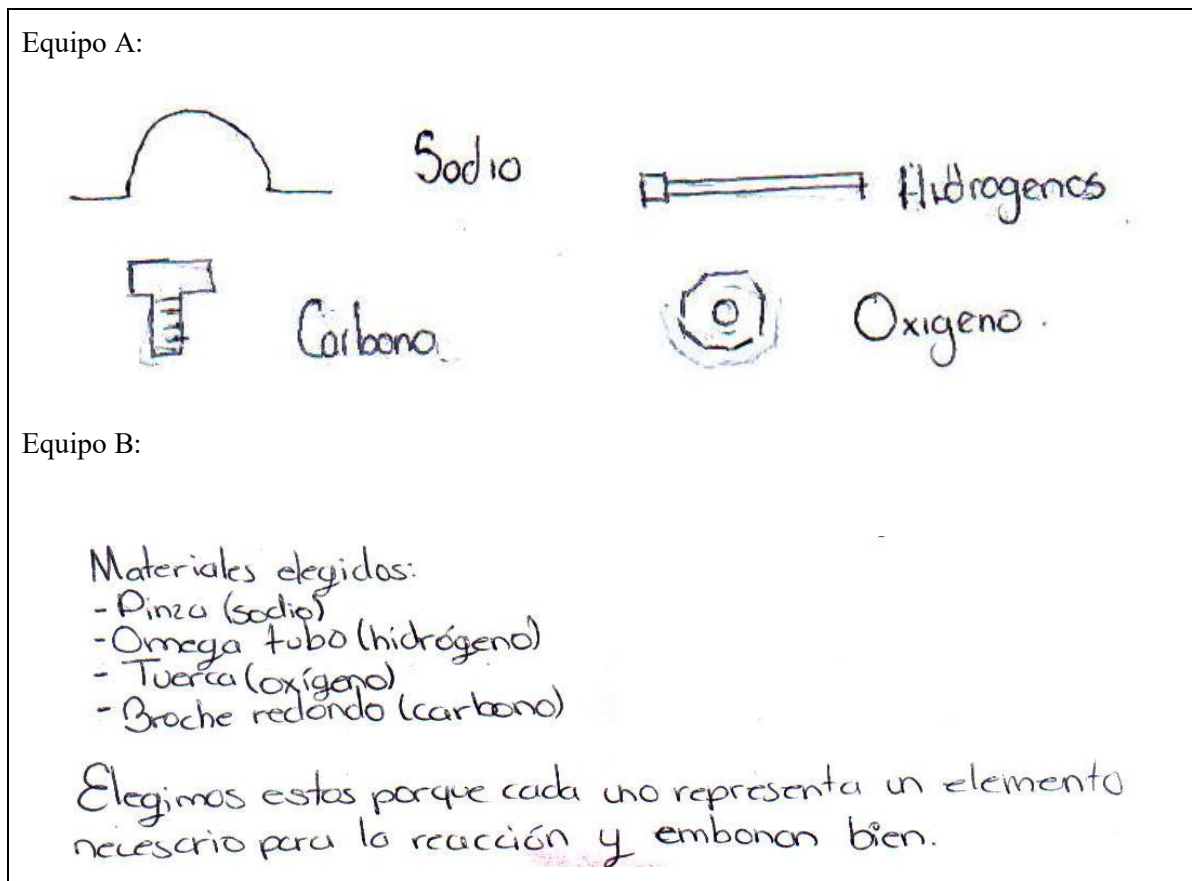 Equipo A:
Sodio
Hidrogenos
Carbono
Oxigeno.
Equipo B:
Materiales elegidos:
- Pinza (sodio)
- Omega tubo (hidrógeno)
- Tuerca (oxígeno)
- Broche redondo (carbono)
Elegimos estos porque cada uno representa un elemento
necesario para la reacción y embonan bien.